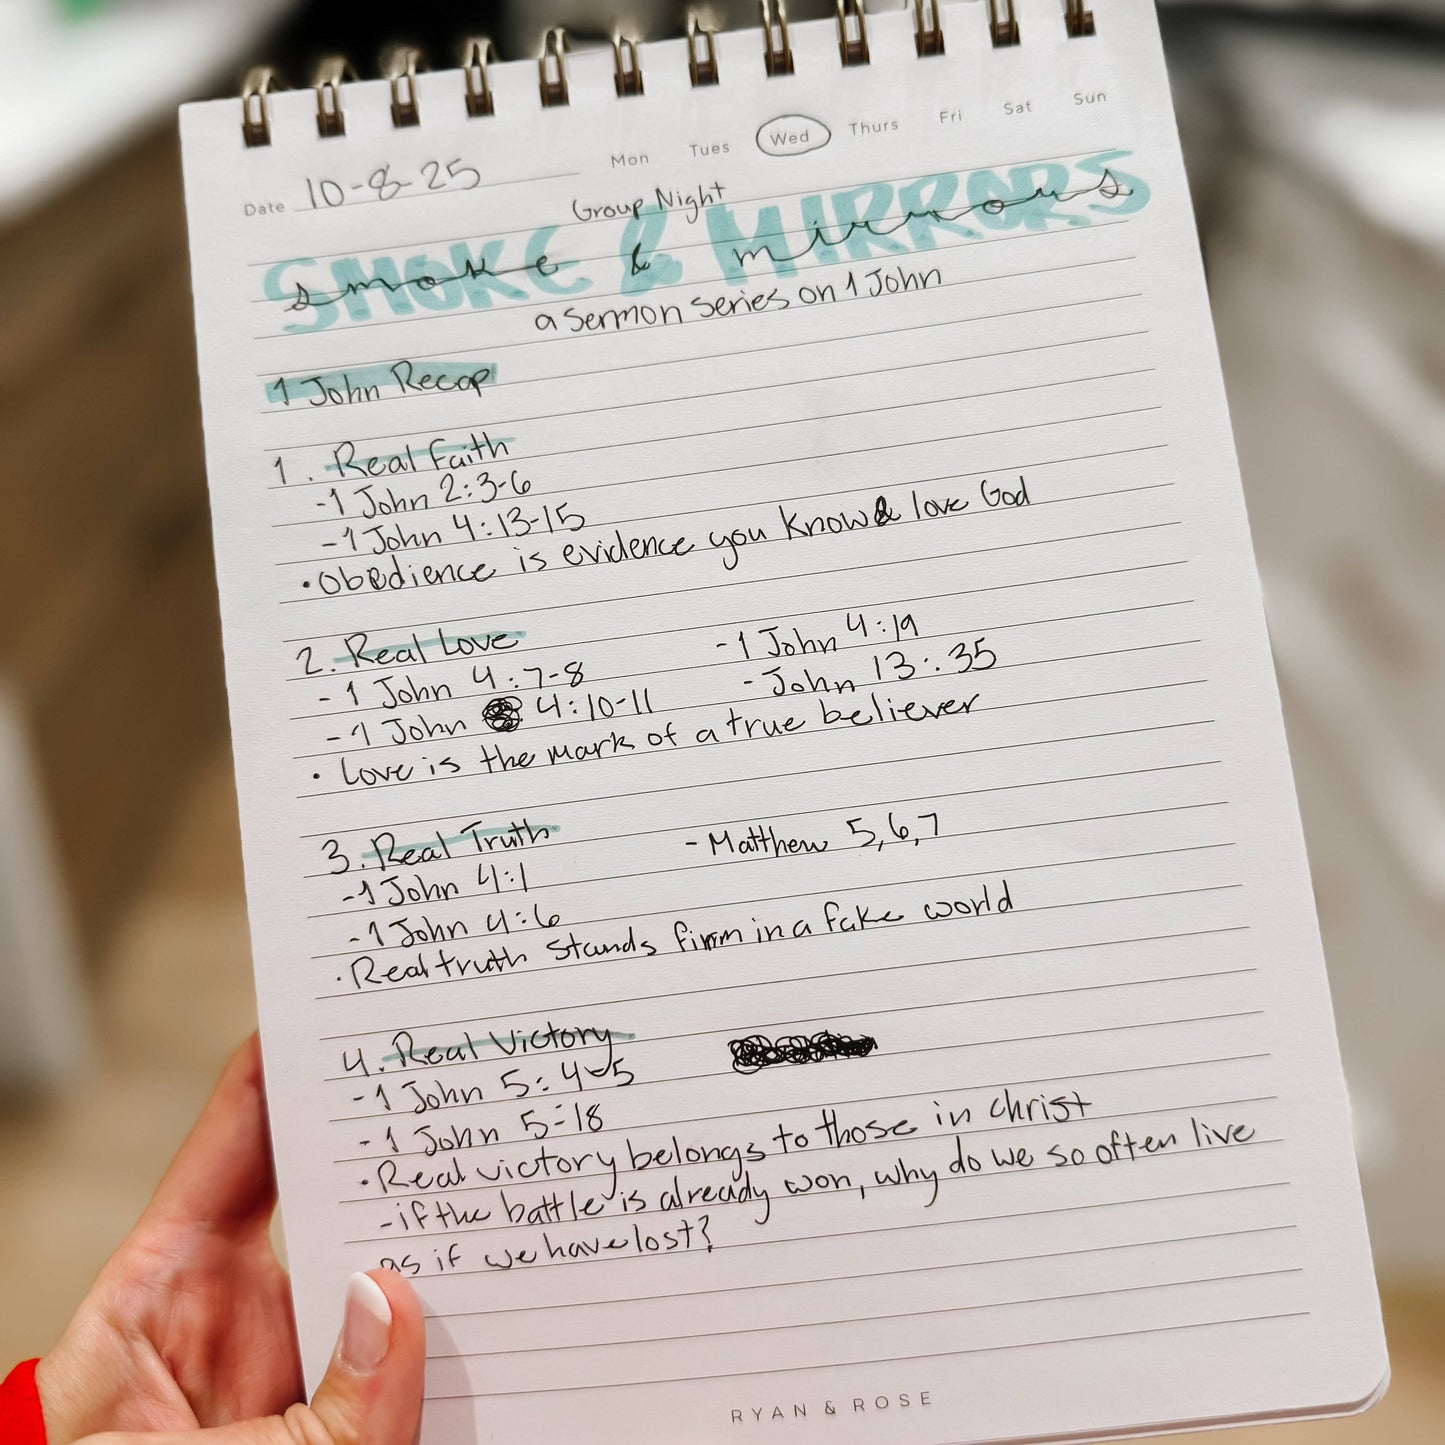 Date 10-8-25 Mon Tues Wed Thurs Fri Sat Sun
Group Night
SMOKE & MIRRORS
smoke & mirrors
a sermon series on 1 John
1 John Recap
1. Real Faith
-1 John 2:3-6
-1 John 4:13-15
•Obedience is evidence you know & love God
2. Real Love
- 1 John 4:7-8
- 1 John 4:10-11
- 1 John 4:19
- John 13:35
• Love is the mark of a true believer
3. Real Truth
-1 John 4:1
-1 John 4:6
- Matthew 5,6,7
•Real truth stands firm in a fake world
4. Real Victory
- 1 John 5:4-5
- 1 John 5:18
•Real victory belongs to those in Christ
-if the battle is already won, why do we so often live
as if we have lost?
RYAN & ROSE